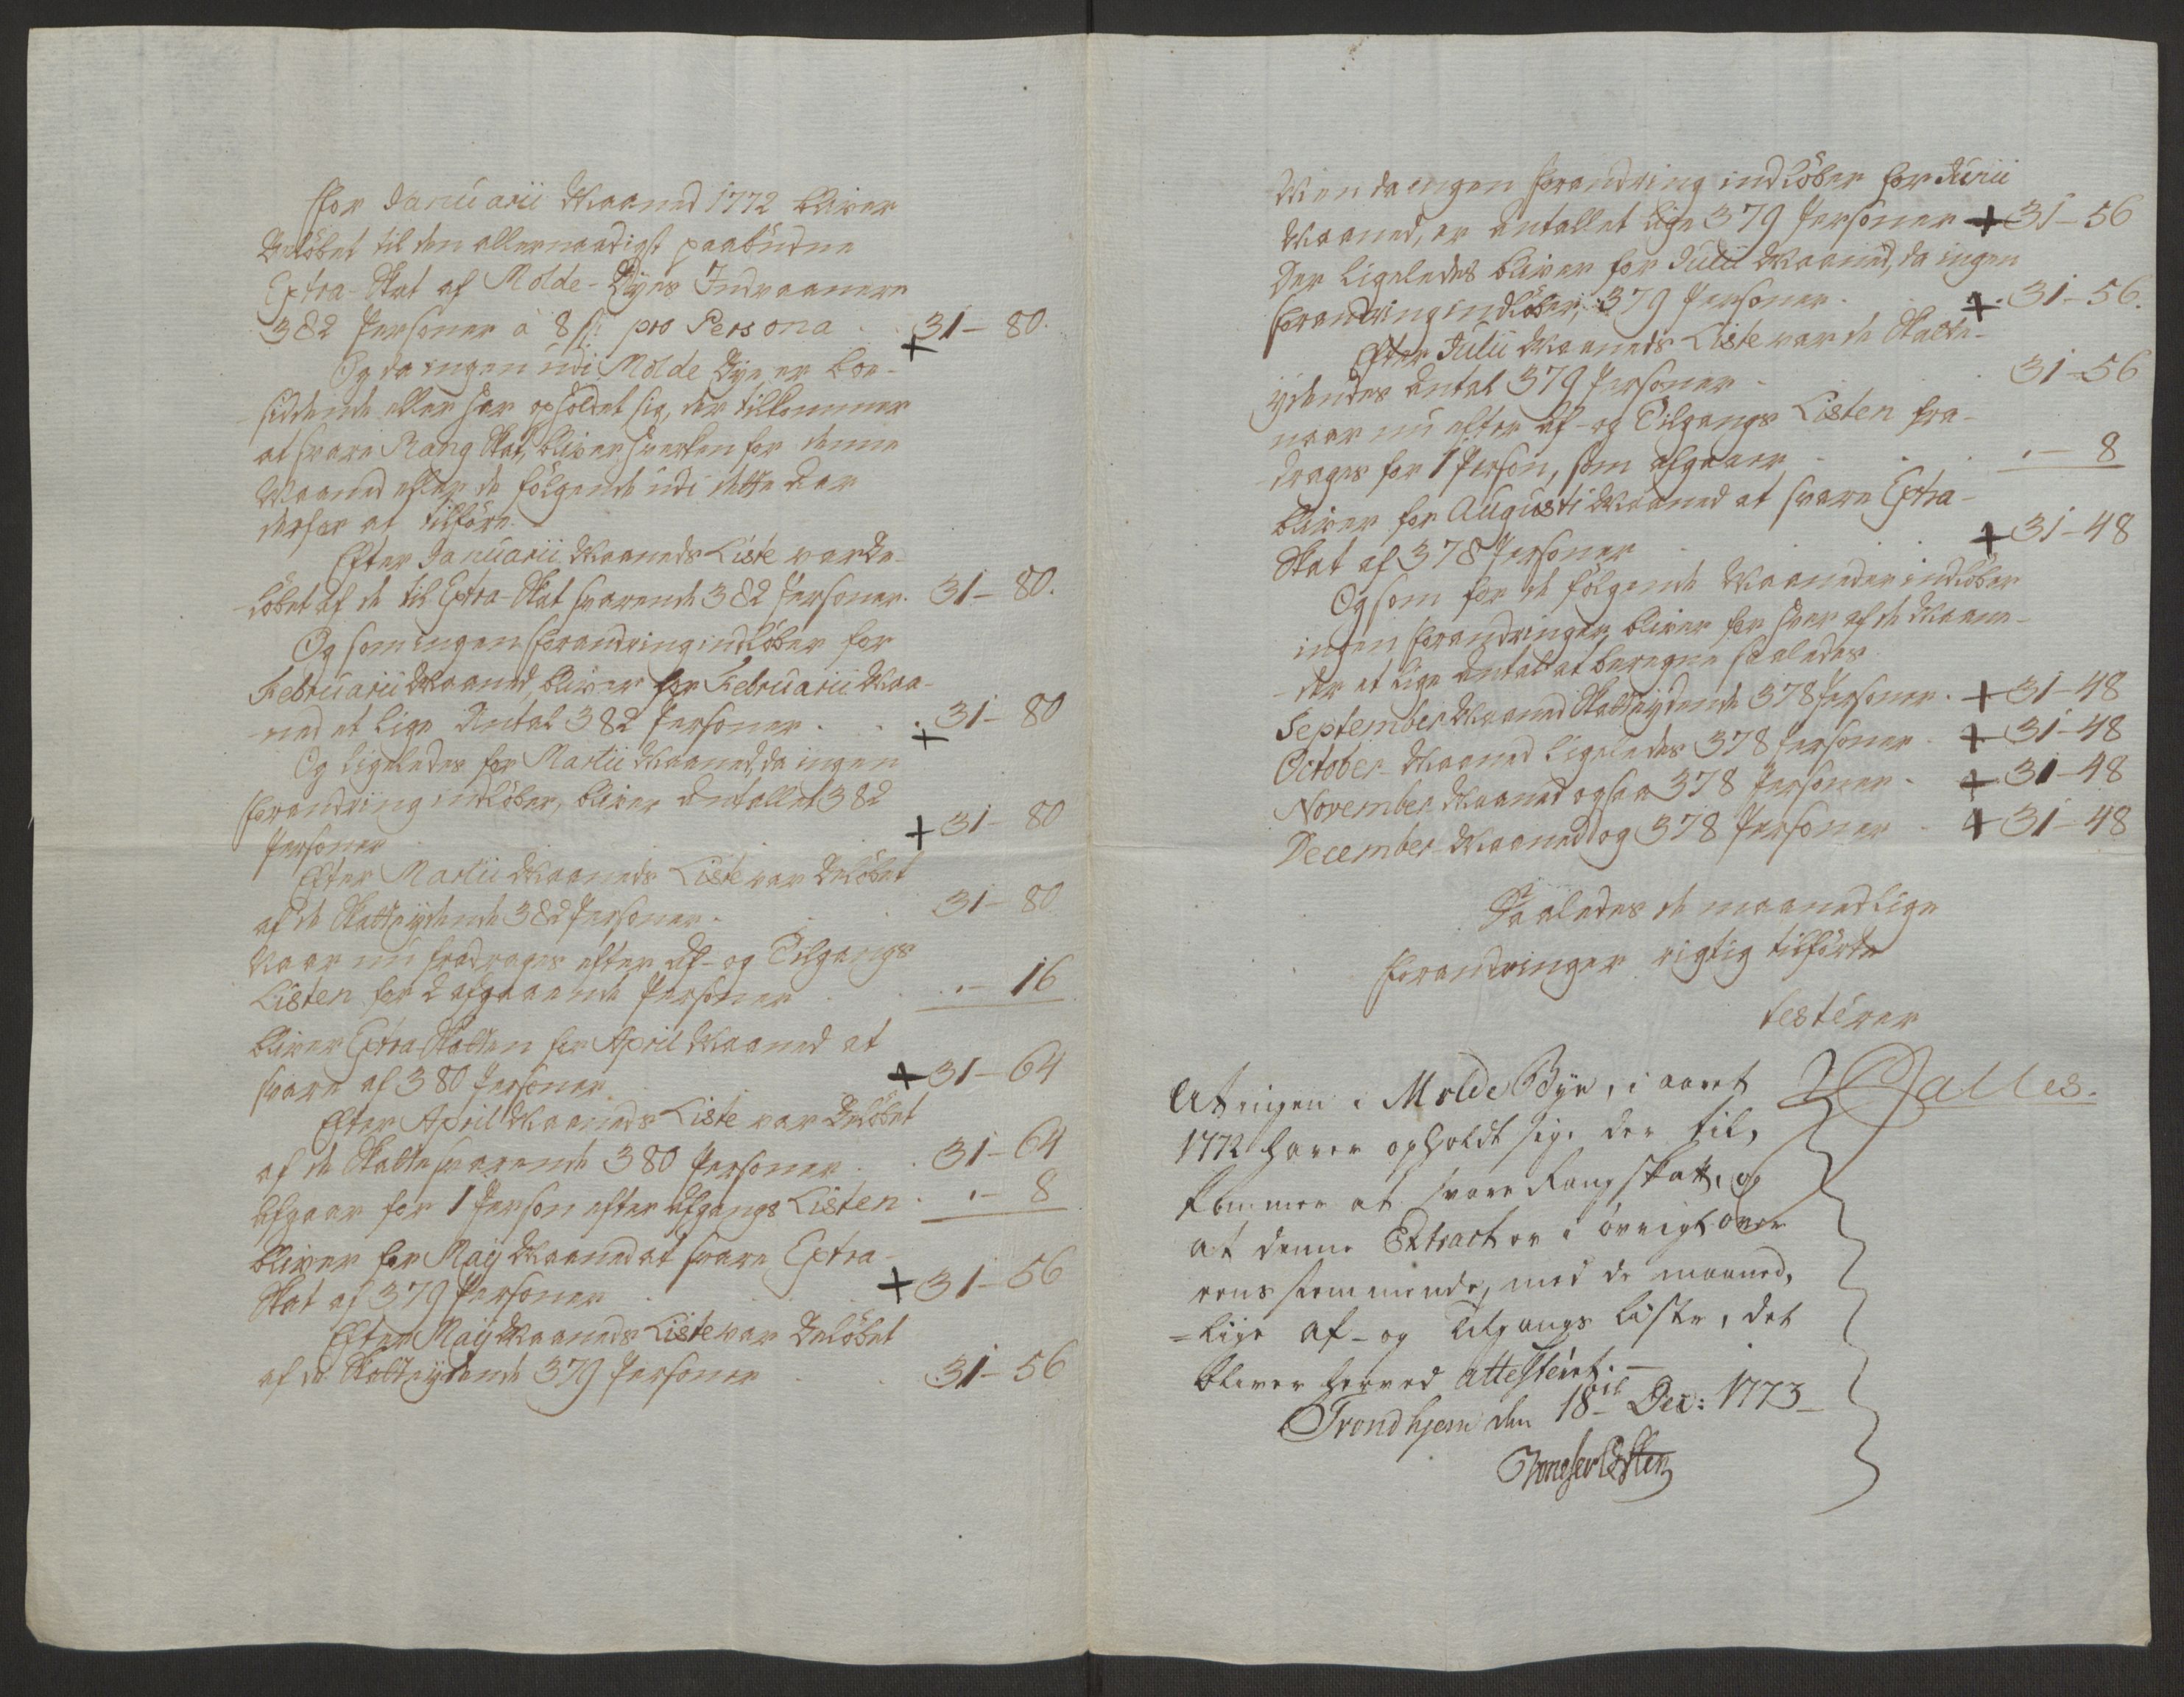 For Januarii Maaned 1772 bliver
Beløbet til den allernaadigst paabudne
Extra-Skat af Molde-Byes Indvaanere
382 Personer à 8 s: pro Persona . . + 31 - 80.
Og da ingen udi Molde Bye er boe-
siddende eller har opholdet sig, der tilkommer
at svare Rang Skat, bliver hverken for denne
Maaned eller de følgende udi dette Aar
derfor at tilføre.
Efter Januarii Maaneds Liste var Be-
løbet af de til Extra-Skat svarende 382 Personer. 31 - 80.
Og som ingen Forandring indløber for
Februarii Maaned, bliver for Februarii Maa-
ned et lige Antal 382 Personer . . . + 31 - 80
Og ligeledes for Martii Maaned, da ingen
Forandring indløber, bliver Antallet 382
Personer . + 31 - 80
Efter Martii Maaneds Liste var Beløbet
af de Skatteydende 382 Personer . . 31 - 80
Naar nu fradrages efter Af- og Tilgangs
Listen for 2 afgaaende Personer . . . - 16
bliver Extra Skatten for April Maaned at
svare af 380 Personer . + 31 - 64
Efter April Maaneds Liste var Beløbet
af de Skattesvarende 380 Personer . . 31 - 64
Afgaar for 1 Person efter Afgangs Listen . . - 8
bliver for Maij Maaned at svare Extra-
Skat af 379 Personer . . . + 31 - 56
Efter Maij Maaneds Liste var Beløbet
af de Skatteydende 379 Personer . . 31 - 56
Men da ingen Forandring indløber for Junii
Maaned, er Antallet lige 379 Personer + 31 - 56
Der ligeledes bliver for Julii Maaned, da ingen
Forandring indløber, 379 Personer . + 31 - 56.
Efter Julii Maaneds Liste var de Skatte-
ydendes Antal 379 Personer . . 31 - 56
naar nu efter Af- og Tilgangs Listen fra-
drages for 1 Person, som afgaaer . . . - 8
bliver for Augusti Maaned at svare Extra-
Skat af 378 Personer . . + 31 - 48
Og som for de følgende Maaneder indløber
ingen Forandringer, bliver for hver af de Maane-
der et lige Antal at beregne saaledes
September Maaned Skatteydende 378 Personer . + 31 - 48
October - Maaned ligeledes 378 Personer . + 31 - 48
November Maaned ogsaa 378 Personer . + 31 - 48
December Maaned og 378 Personer . + 31 - 48
Saaledes de maanedlige
Forandringer rigtig tilførte
testérer
Dalles.
At ingen i Molde Bye, i aaret
1772 haver opholdt sig, der til,
kommer at svare Rangskatt, og
at denne Extract er i øvrigt over
eens stemmende, med de maaned,
=lige af- og tilgangs liste, det
bliver herved attestéret. -
Trondhjem den 18de Dec: 1773 -